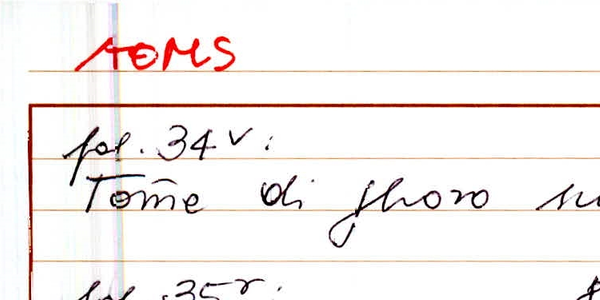 AOMS
fol. 34v:
Tom̄e di ghoro
fol. 35r: